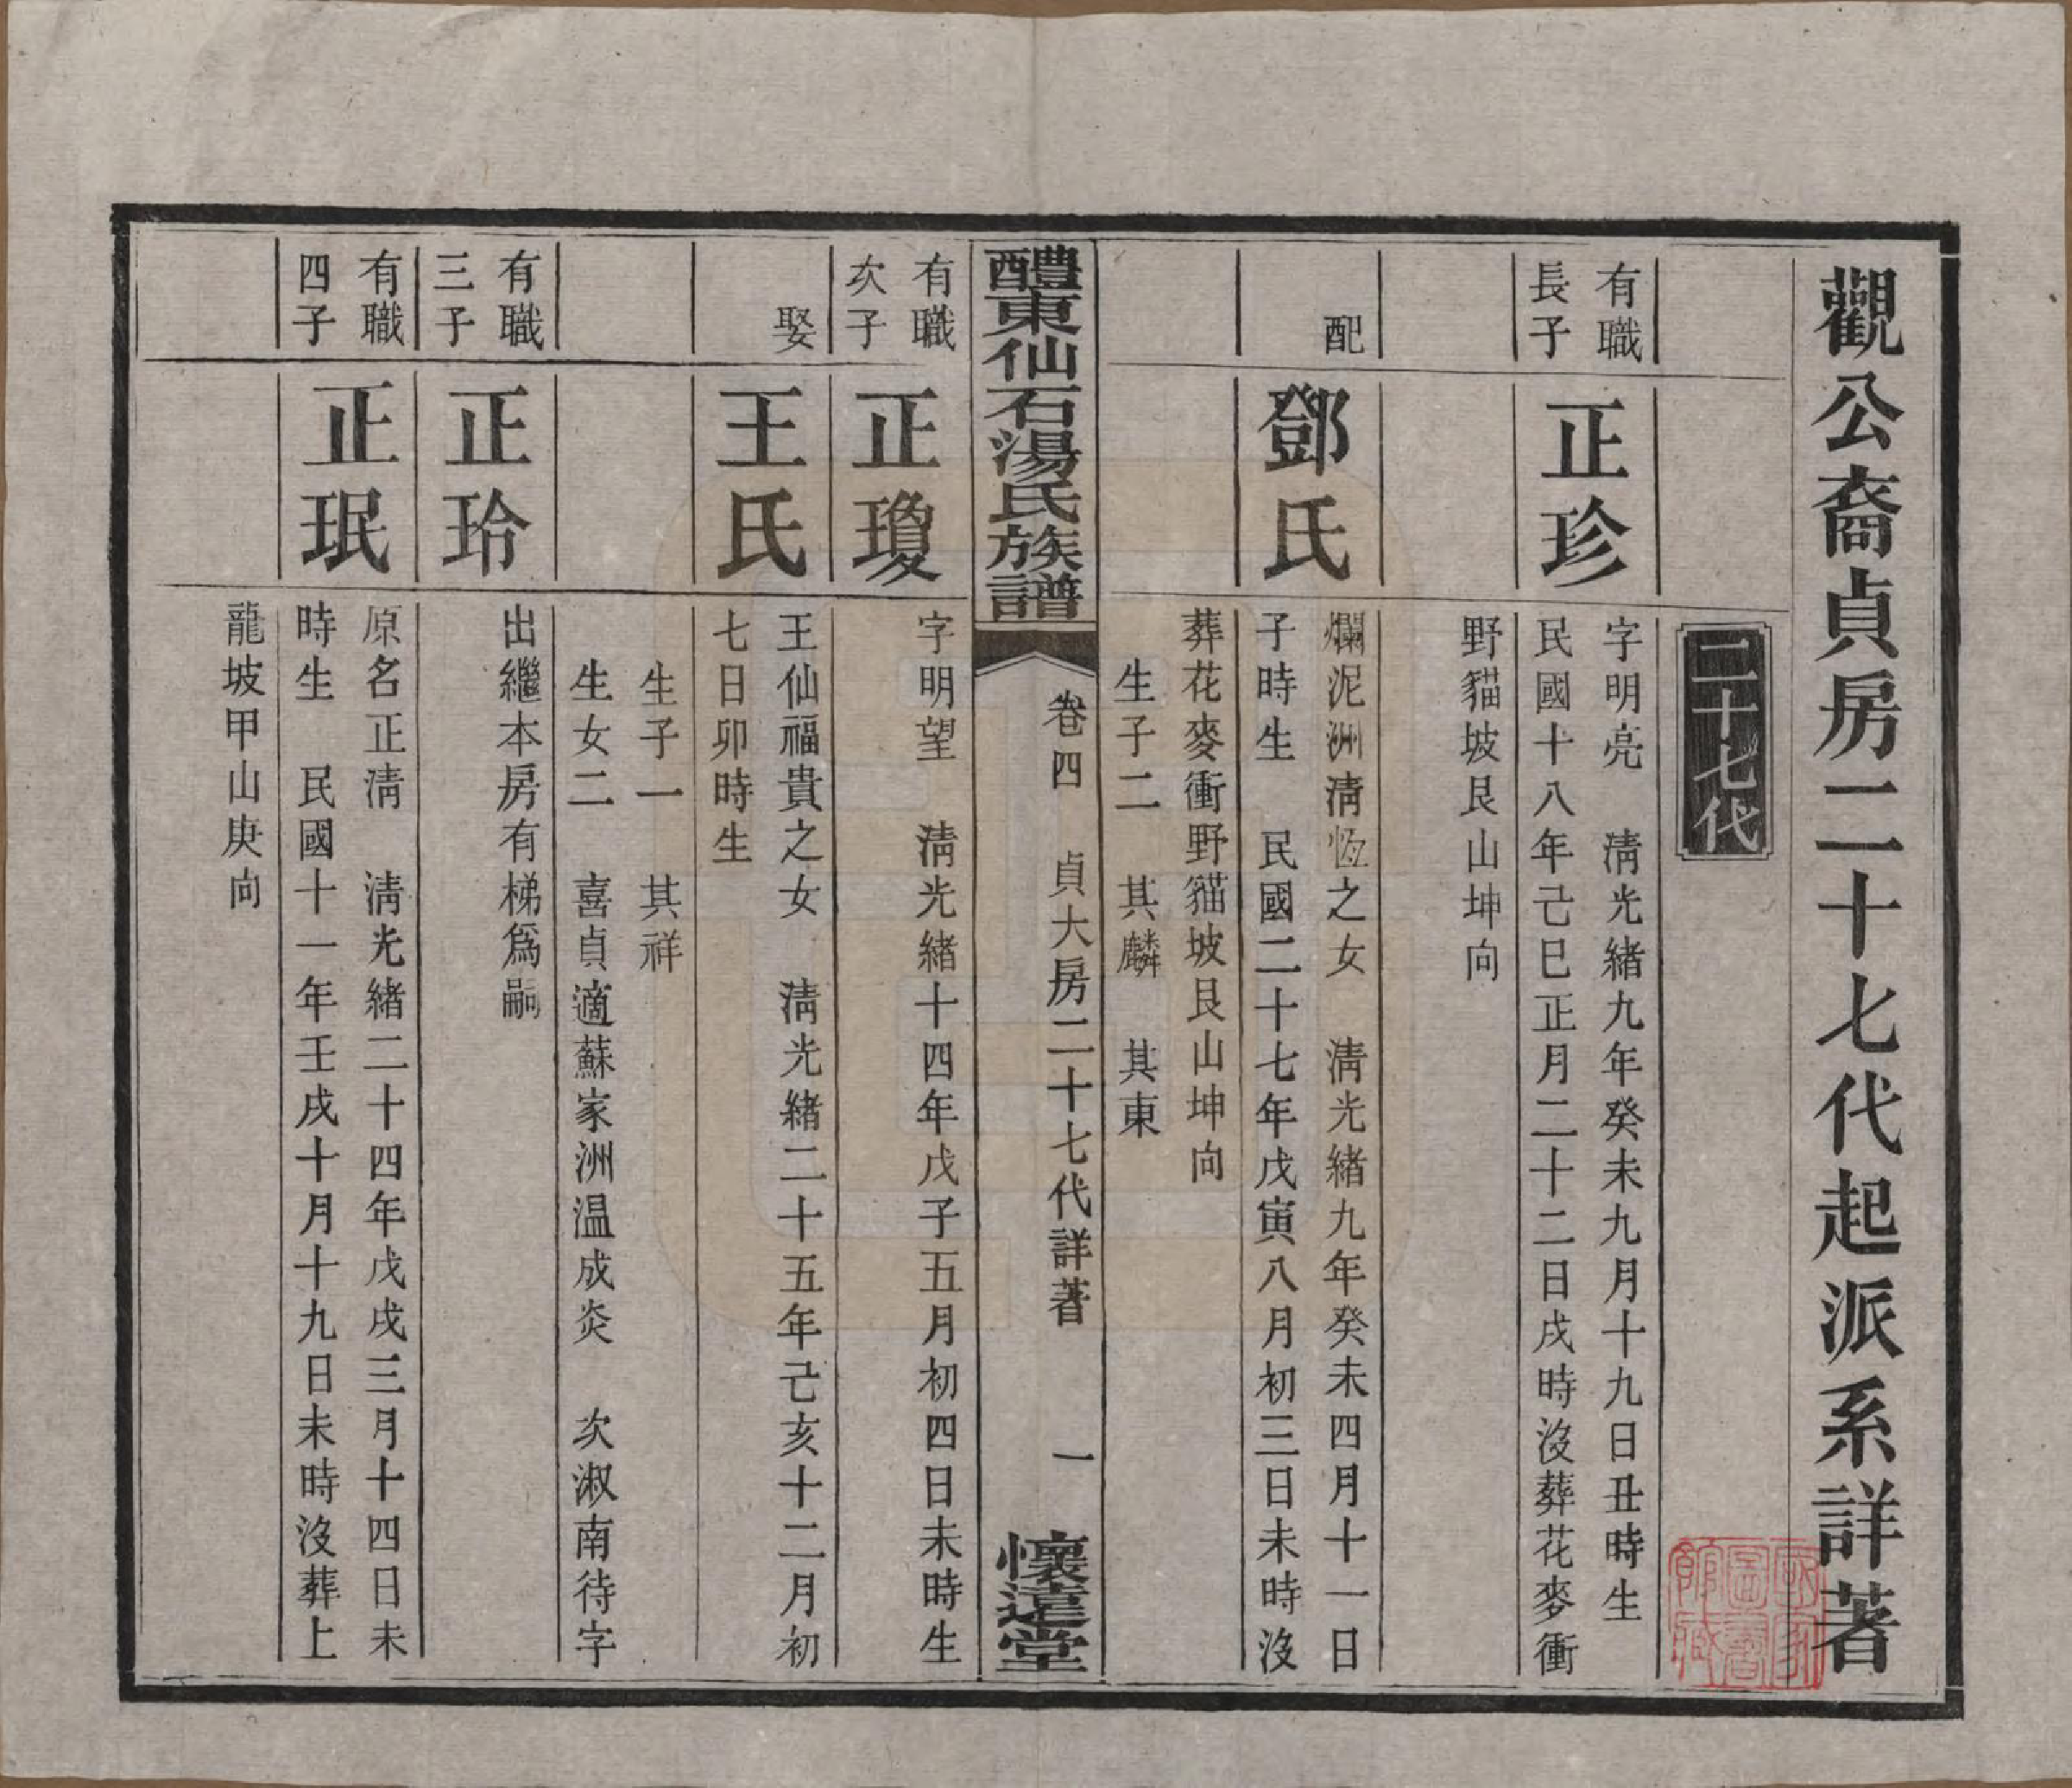 觀公裔貞房二十七代起派系詳著
二十七代
有職
長子
正珍
字明亮　清光緒九年癸未九月十九日丑時生
民國十八年己巳正月二十二日戌時沒葬花麥衝
野貓坡艮山坤向
配
鄧氏
爛泥洲清恆之女　清光緒九年癸未四月十一日
子時生　民國二十七年戊寅八月初三日未時沒
葬花麥衝野貓坡艮山坤向
生子二　其麟　其東
醴東仙石湯氏族譜
卷四　貞大房二十七代詳著　一
懷遠堂
有職
次子
正瓊
字明望　清光緒十四年戊子五月初四日未時生
娶
王氏
王仙福貴之女　清光緒二十五年己亥十二月初
七日卯時生
生子一　其祥
生女二　喜貞適蘇家洲温成炎　次淑南待字
有職
三子
正玲
出繼本房有梯爲嗣
有職
四子
正珉
原名正清　清光緒二十四年戊戌三月十四日未
時生　民國十一年壬戌十月十九日未時沒葬上
龍坡甲山庚向
國家圖書館藏